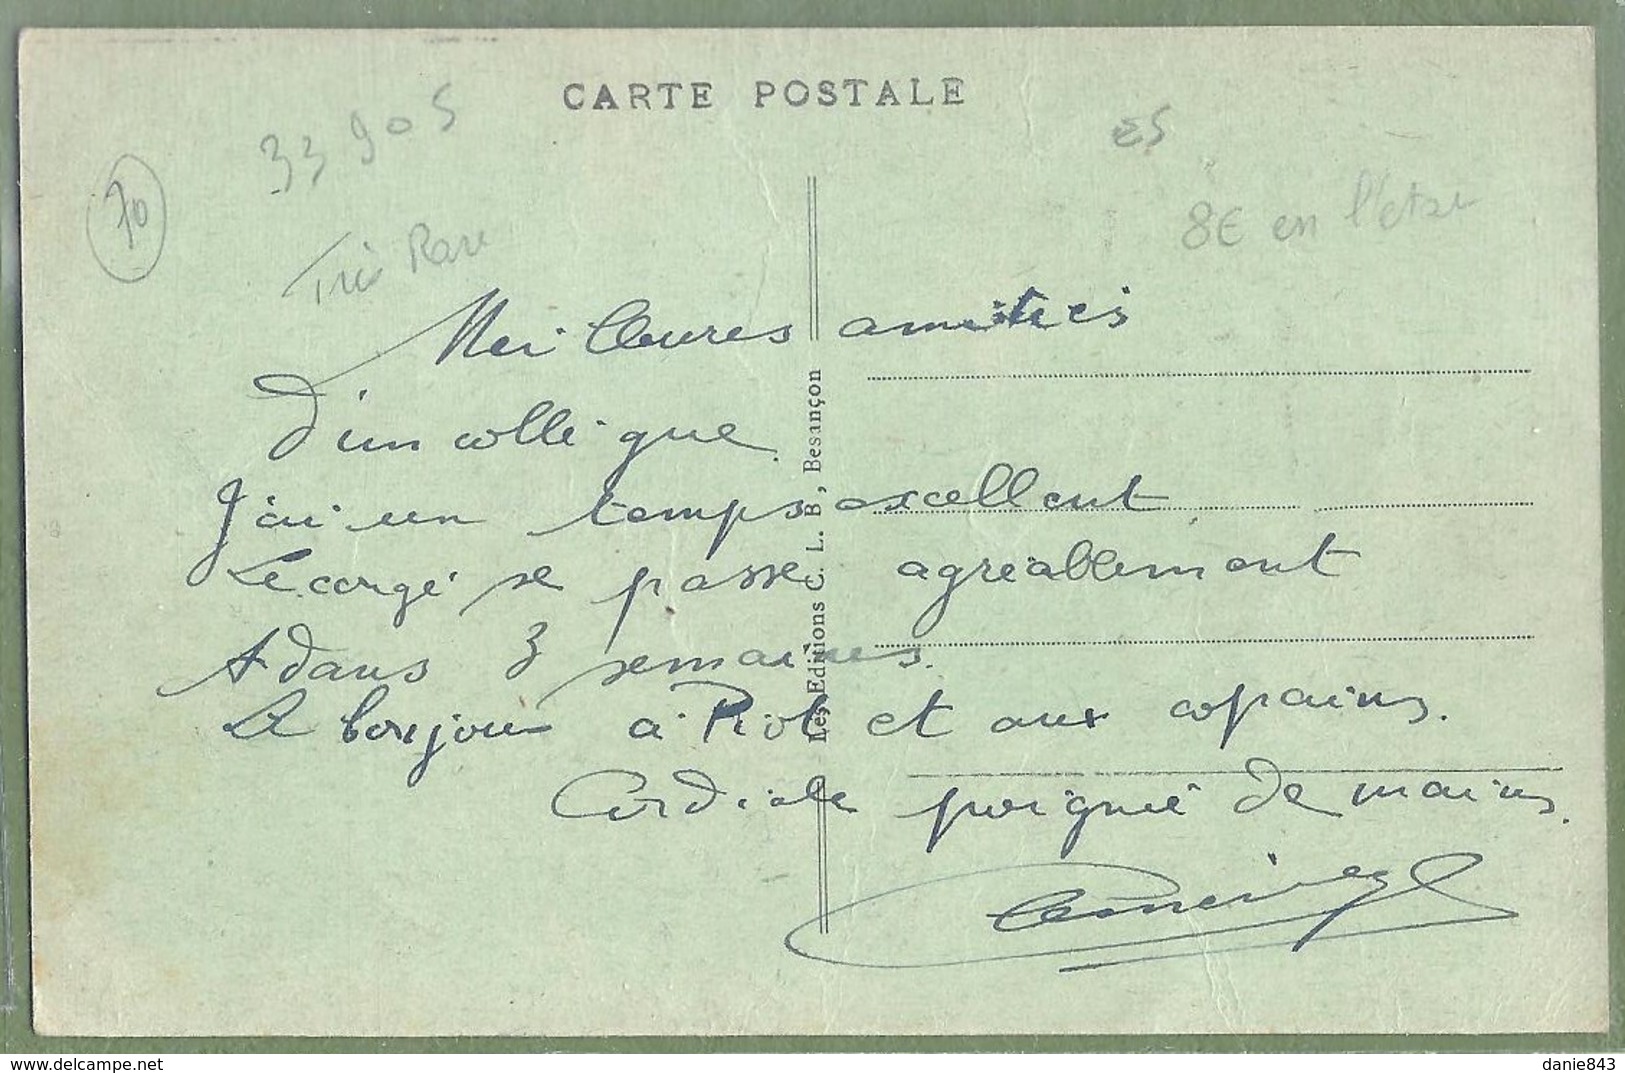 CARTE POSTALE
33905
70
Très Rare
ES
8€ en l'état
Meilleures amitiés
d'un collègue.
J'ai un temps excellent.
Le congé se passe agréablement
A dans 3 semaines.
Le bonjour à Piot et aux copains.
Cordiale poignée de mains.
Les Editions C. L. B, Besançon
danie843